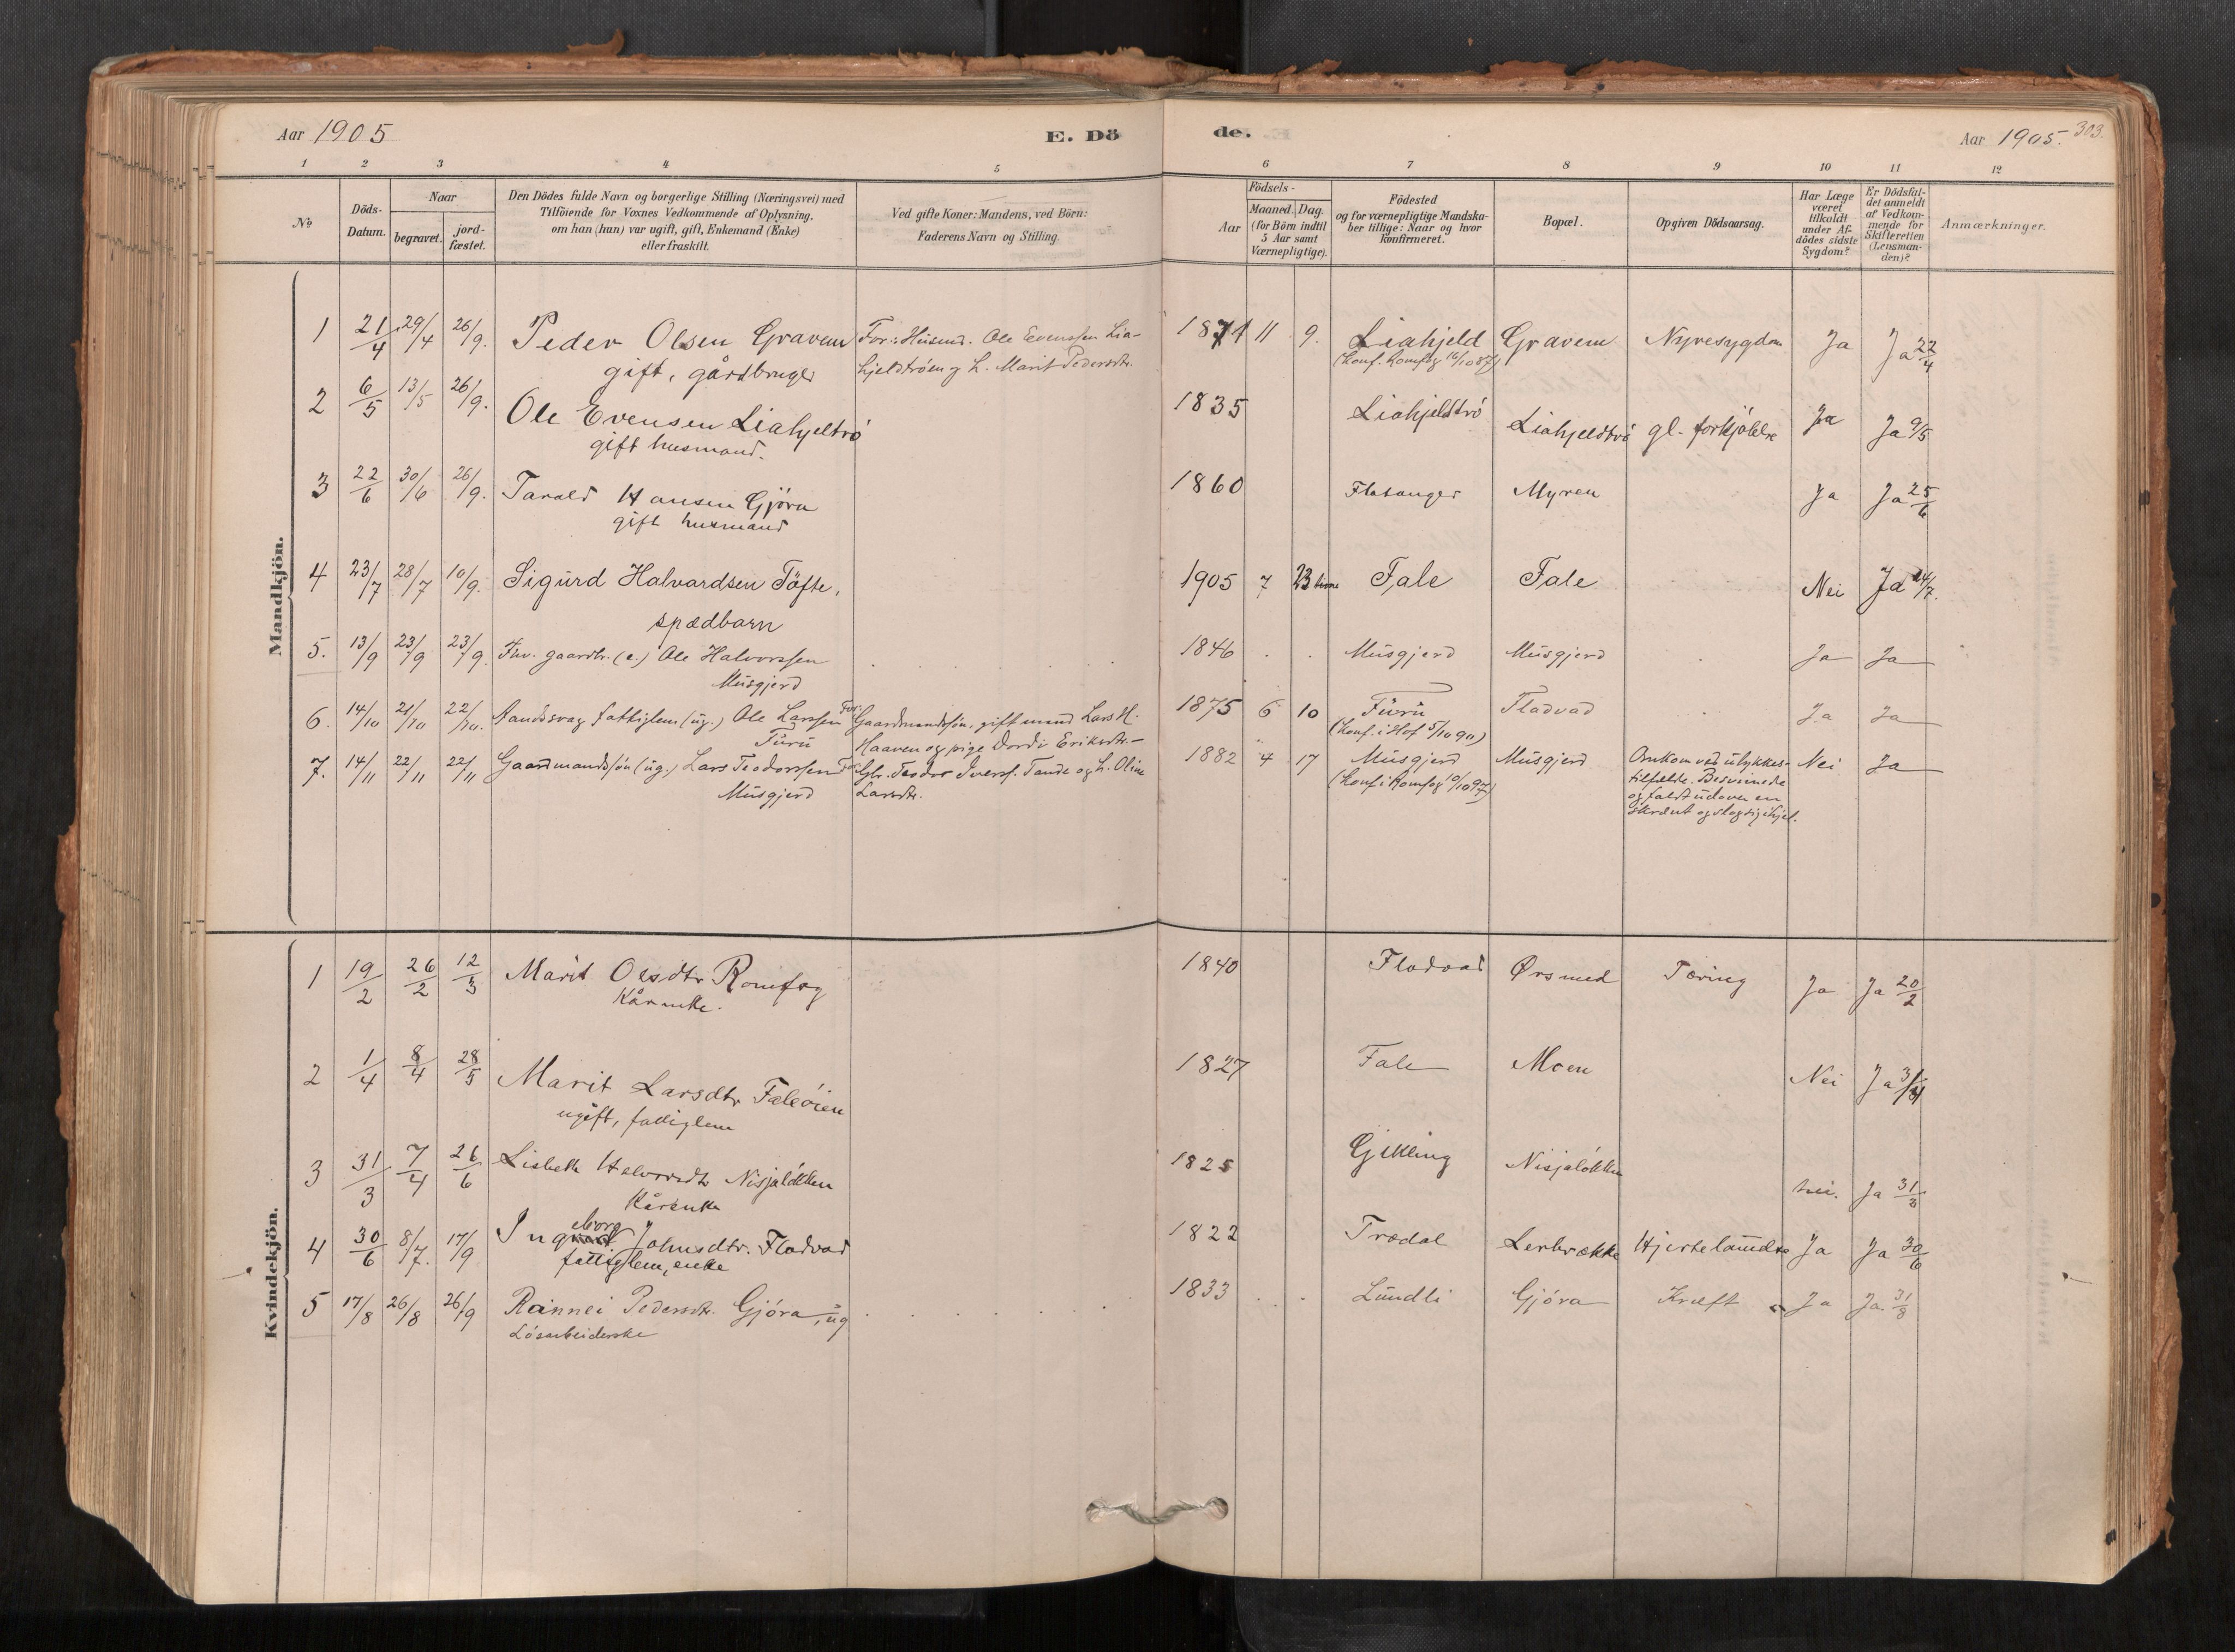 Aar 1905
E. Dö
de.
Aar 1905. 303.
1 2 3 4 5 6 7 8 9 10 11 12
No
Döds-Datum.
Naar
begravet.
jord-fæstet.
Den Dödes fulde Navn og borgerlige Stilling (Næringsvei) med
Tilföiende for Voxnes Vedkommende af Oplysning,
om han (hun) var ugift, gift, Enkemand (Enke)
eller fraskilt.
Ved gifte Koner: Mandens, ved Börn:
Faderens Navn og Stilling
Födsels-
Aar
Maaned. Dag.
(for Börn indtil
5 Aar samt
Værnepligtige).
Födested
og for værnepligtige Mandska-
ber tillige: Naar og hvor
konfirmeret.
Bopæl.
Opgiven Dödsaarsag.
Har Læge
været
tilkaldt
under Af-
dödes sidste
Sygdom?
Er Dödsfal-
det anmeldt
af Vedkom-
mende for
Skifteretten
(Lensman-
den)?
Anmærkninger.
Mandkjön.
1 21/4 29/4 26/9. Peder Olsen Gravem For: Husmd. Ole Evenssen Lia- 1871 11 9. Liahjeld Gravem Nyresygdom Ja Ja 22/4
gift, gårdbruger hjeldtröen og h. Marit Pedersdtr. (Konf. Romfog 16/10 87)
2 6/5 13/5 26/9. Ole Evensen Liahjeltrö 1835 Liahjeldtrö Liahjeldtrö gl. forkjölelse Ja Ja 9/5
gift husmand.
3 22/6 30/6 26/9. Tarald Hansen Gjöra 1860 Flatanger Myren Ja Ja 25/6
gift husmand
4 23/7 28/7 10/9. Sigurd Halvardsen Töfte, 1905 7 23 Fale Fale Nei Ja 24/7.
spædbarn
5. 13/9 23/9 23/9. Fhv. gaardbr. (e.) Ole Halvorssen 1846 Musgjerd Musgjerd Ja Ja
Musgjerd
6. 14/10 21/10 22/10. Aandssvag fattiglem (ug.) Ole Larssen For: Gaardmandssön, gift mand Lars H. 1875 6 10 Furu Fladvad Ja Ja
Furu Haaven og pige Dordi Eriksdtr. (Konf. i Hof 5/10 90)
7. 14/11 22/11 22/11 Gaardmandssön (ug.) Lars Teodorssen For: Gbr. Teodor Iverss. Tande og h. Oline 1882 4 17 Musgjerd Musgjerd Omkom ved ulykkes- Nei Ja
Musgjerd Larsdtr. (Konf. i Romfog 10/10 97) tilfælde. Besvimede
og faldt udover en
skrænt og slog sig ihjel.
Kvindekjön.
1 19/2 26/2 12/3 Marit Olsdtr Romfog 1840 Fladvad Ørsmed Tæring Ja Ja 20/2
Kårenke.
2 1/4 8/4 28/5 Marit Larsdtr Faleöien 1827 Fale Moen Nei Ja
ugift, fattiglem
3 31/3 7/4 26/6 Lisbeth Nisjalökken 1825 Gikling Nisjalökken nei. Ja 31/3
Kårenke
4 30/6 8/7. 17/9 Ingeborg Johnsdtr. Fladvad 1822 Trædal Lerbrække Hjertelamelse Ja Ja 30/6
fattiglem, enke
5 17/8 26/8 26/9 Rannei Pedersdtr. Gjöra, ug 1833 Lundli Gjöra Kræft Ja Ja. 31/8
Lösarbeiderske